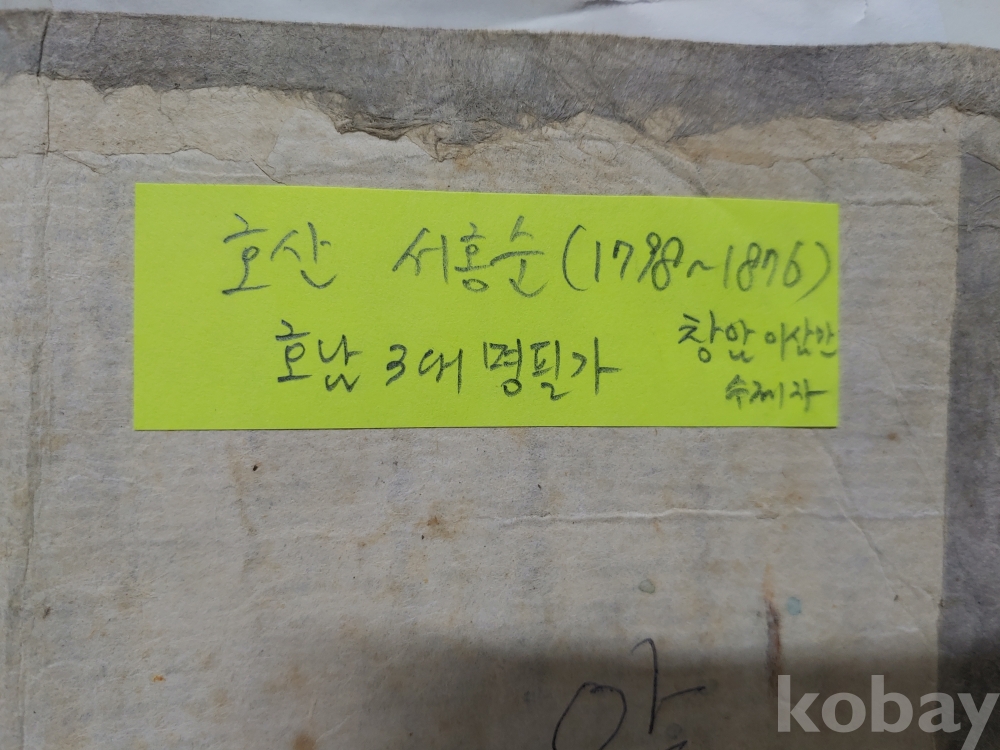 호산 서홍순(1798~1876)
호남 3대 명필가
창암 이삼만
수제자
kobay